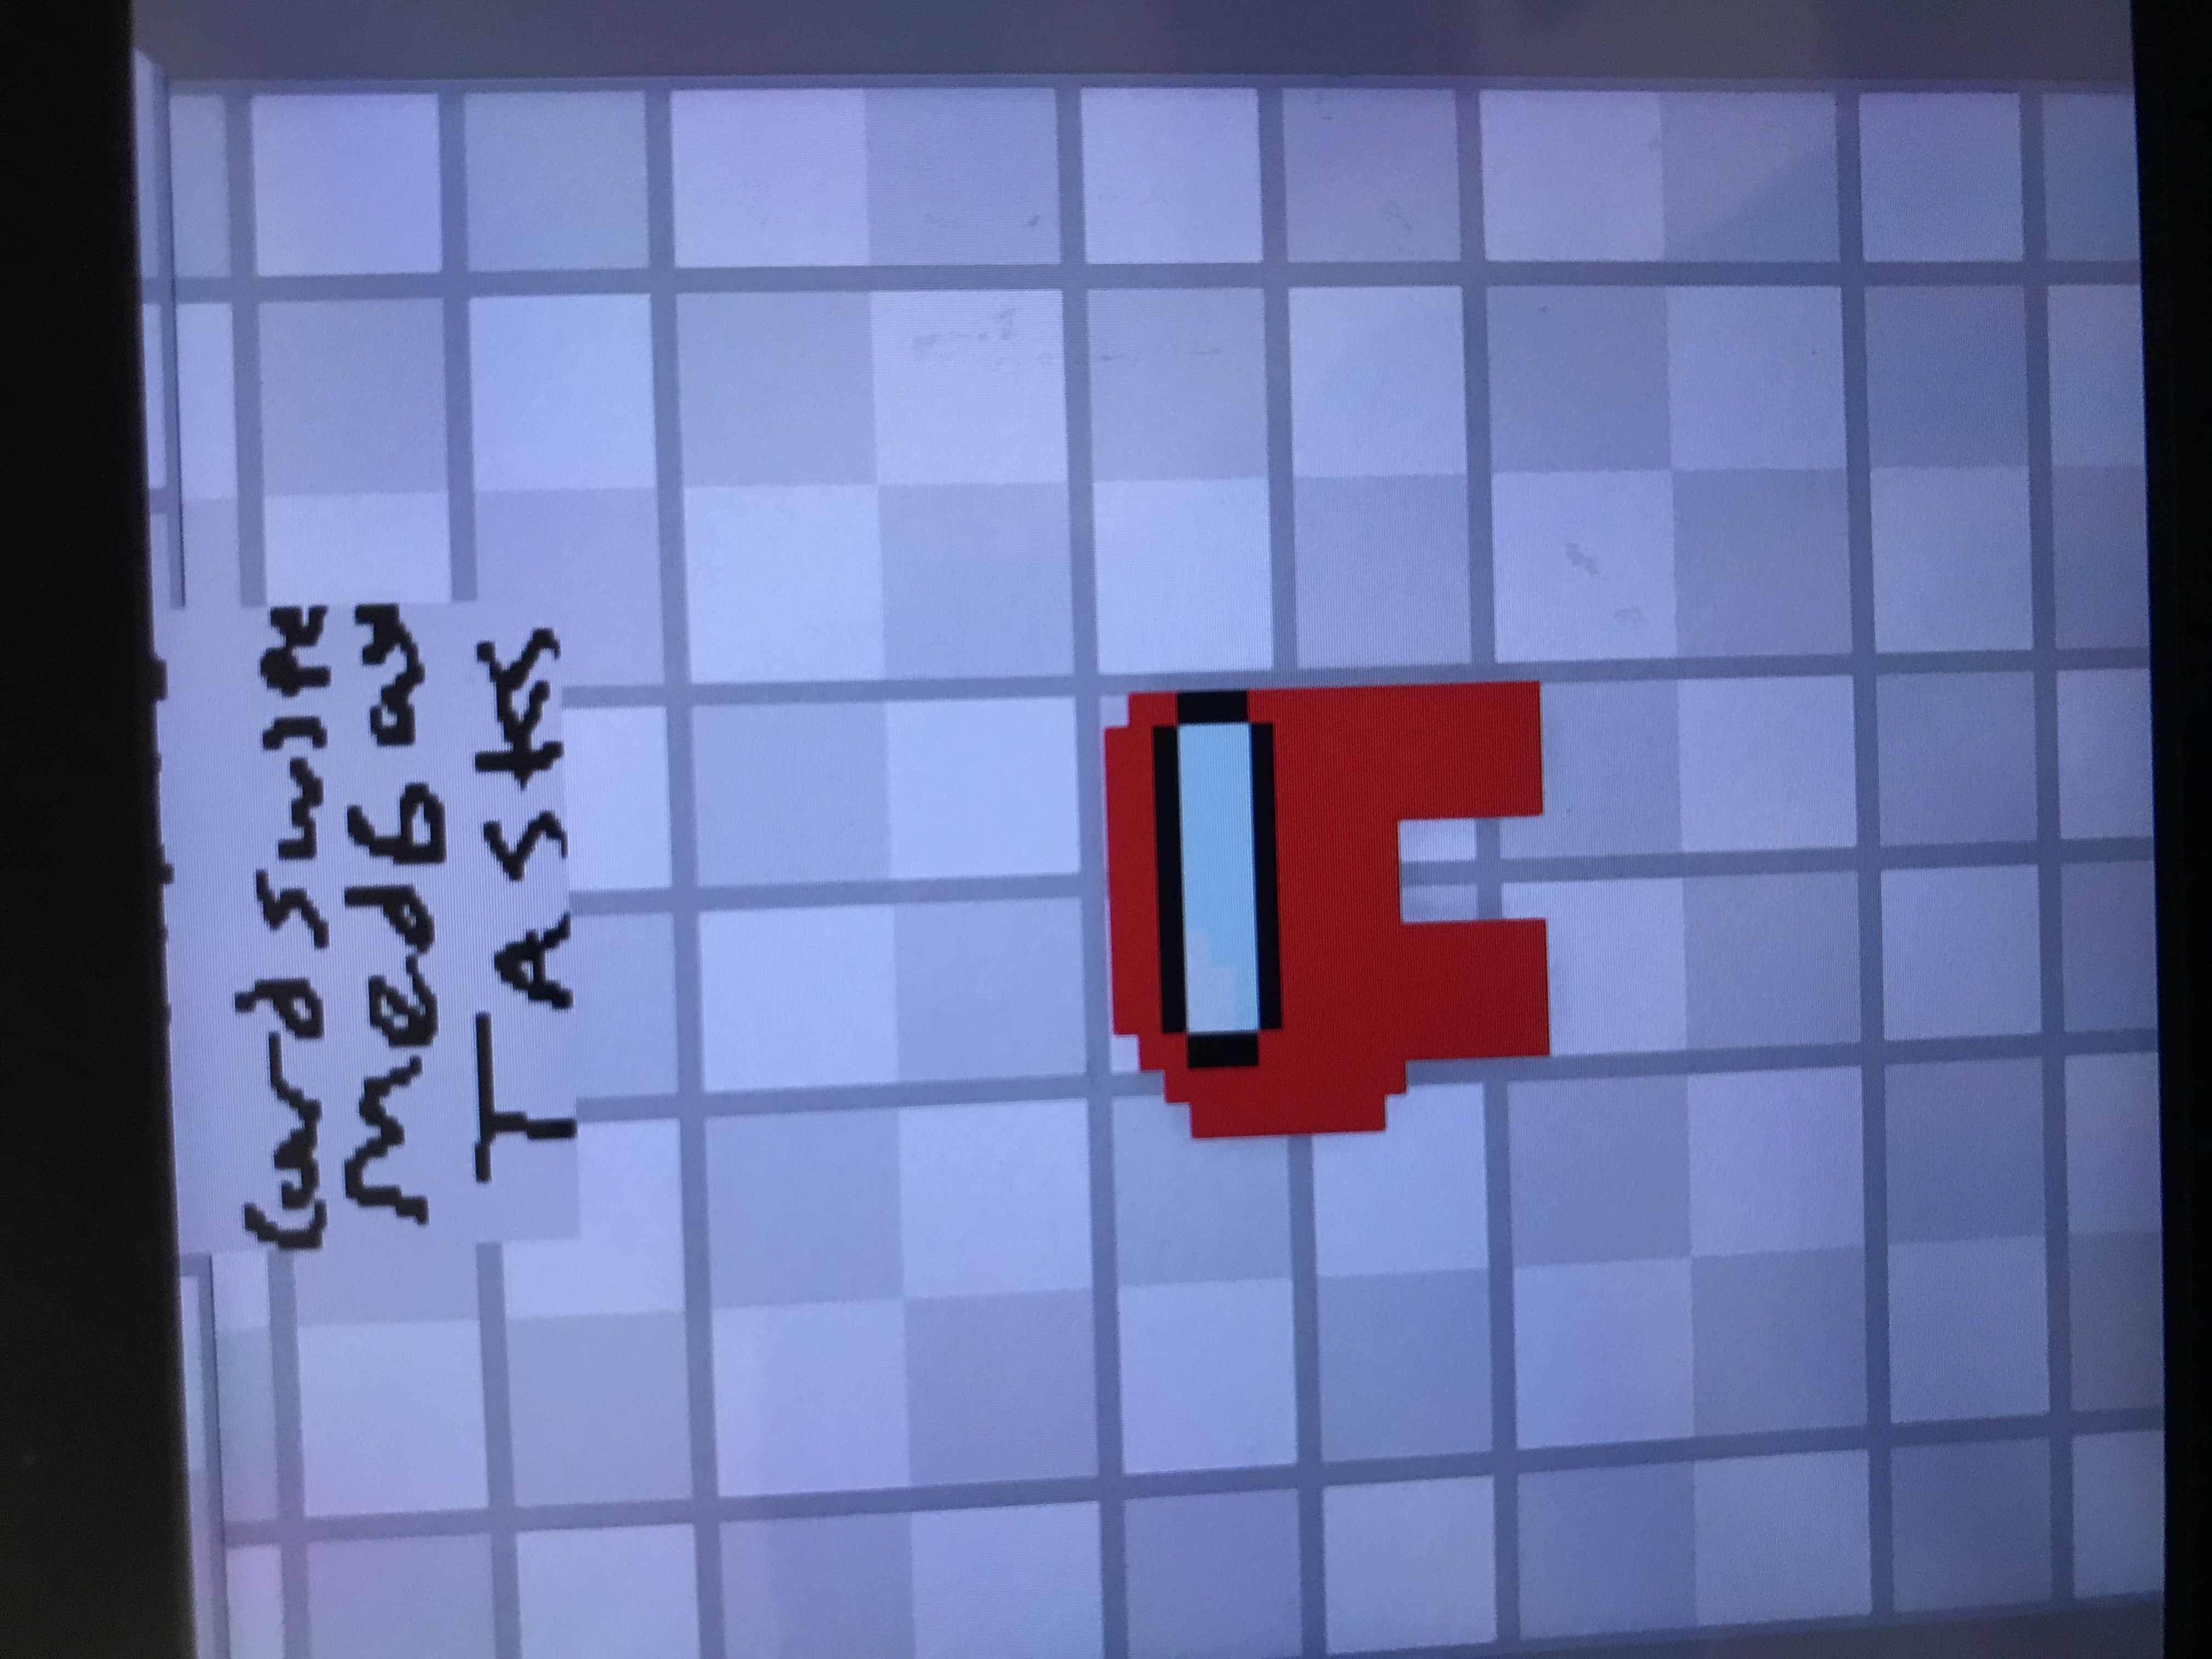 Card Swipe
Med Bay
TASks